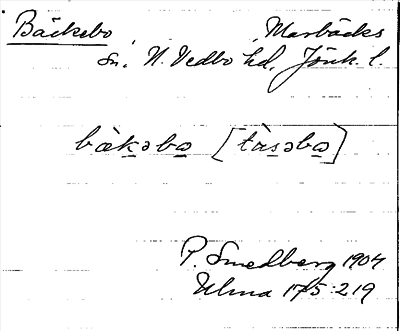 Bäckebo, Marbäcks
sn. N. Vedbo hd, Jönk. l.
bäkəbo [tàsəbo]
P. Smedberg 1904
Ulma 175:219